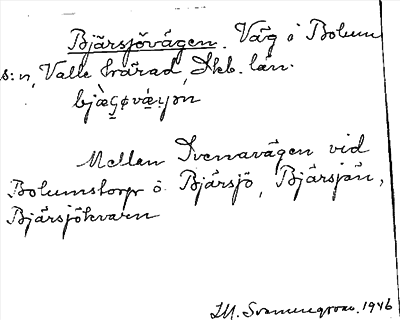 Bjärsjövägen. Väg i Bolum
s:n, Valle härad, Skb. län.
Mellan Svenavägen vid
Bolumstorp o. Bjärsjö, Bjärsjön,
Bjärsjökvarn
1946